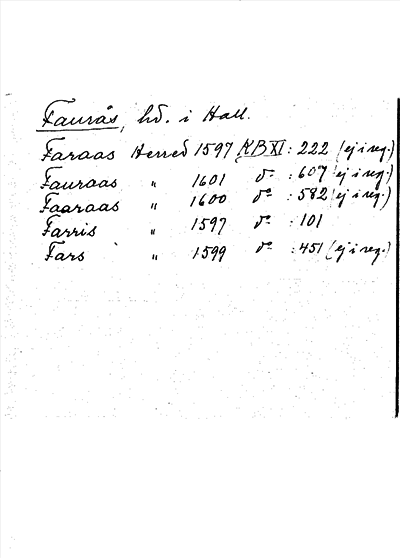 Faurås, hd. i Hall.
Faraas Herred 1597 KB XI : 222 (ej i reg.)
Fauraas " 1601 do : 607 (ej i reg.)
Faaraas " 1600 do : 582 (ej i reg.)
Farris " 1597 do : 101
Fars " 1599 do : 451 (ej i reg.)